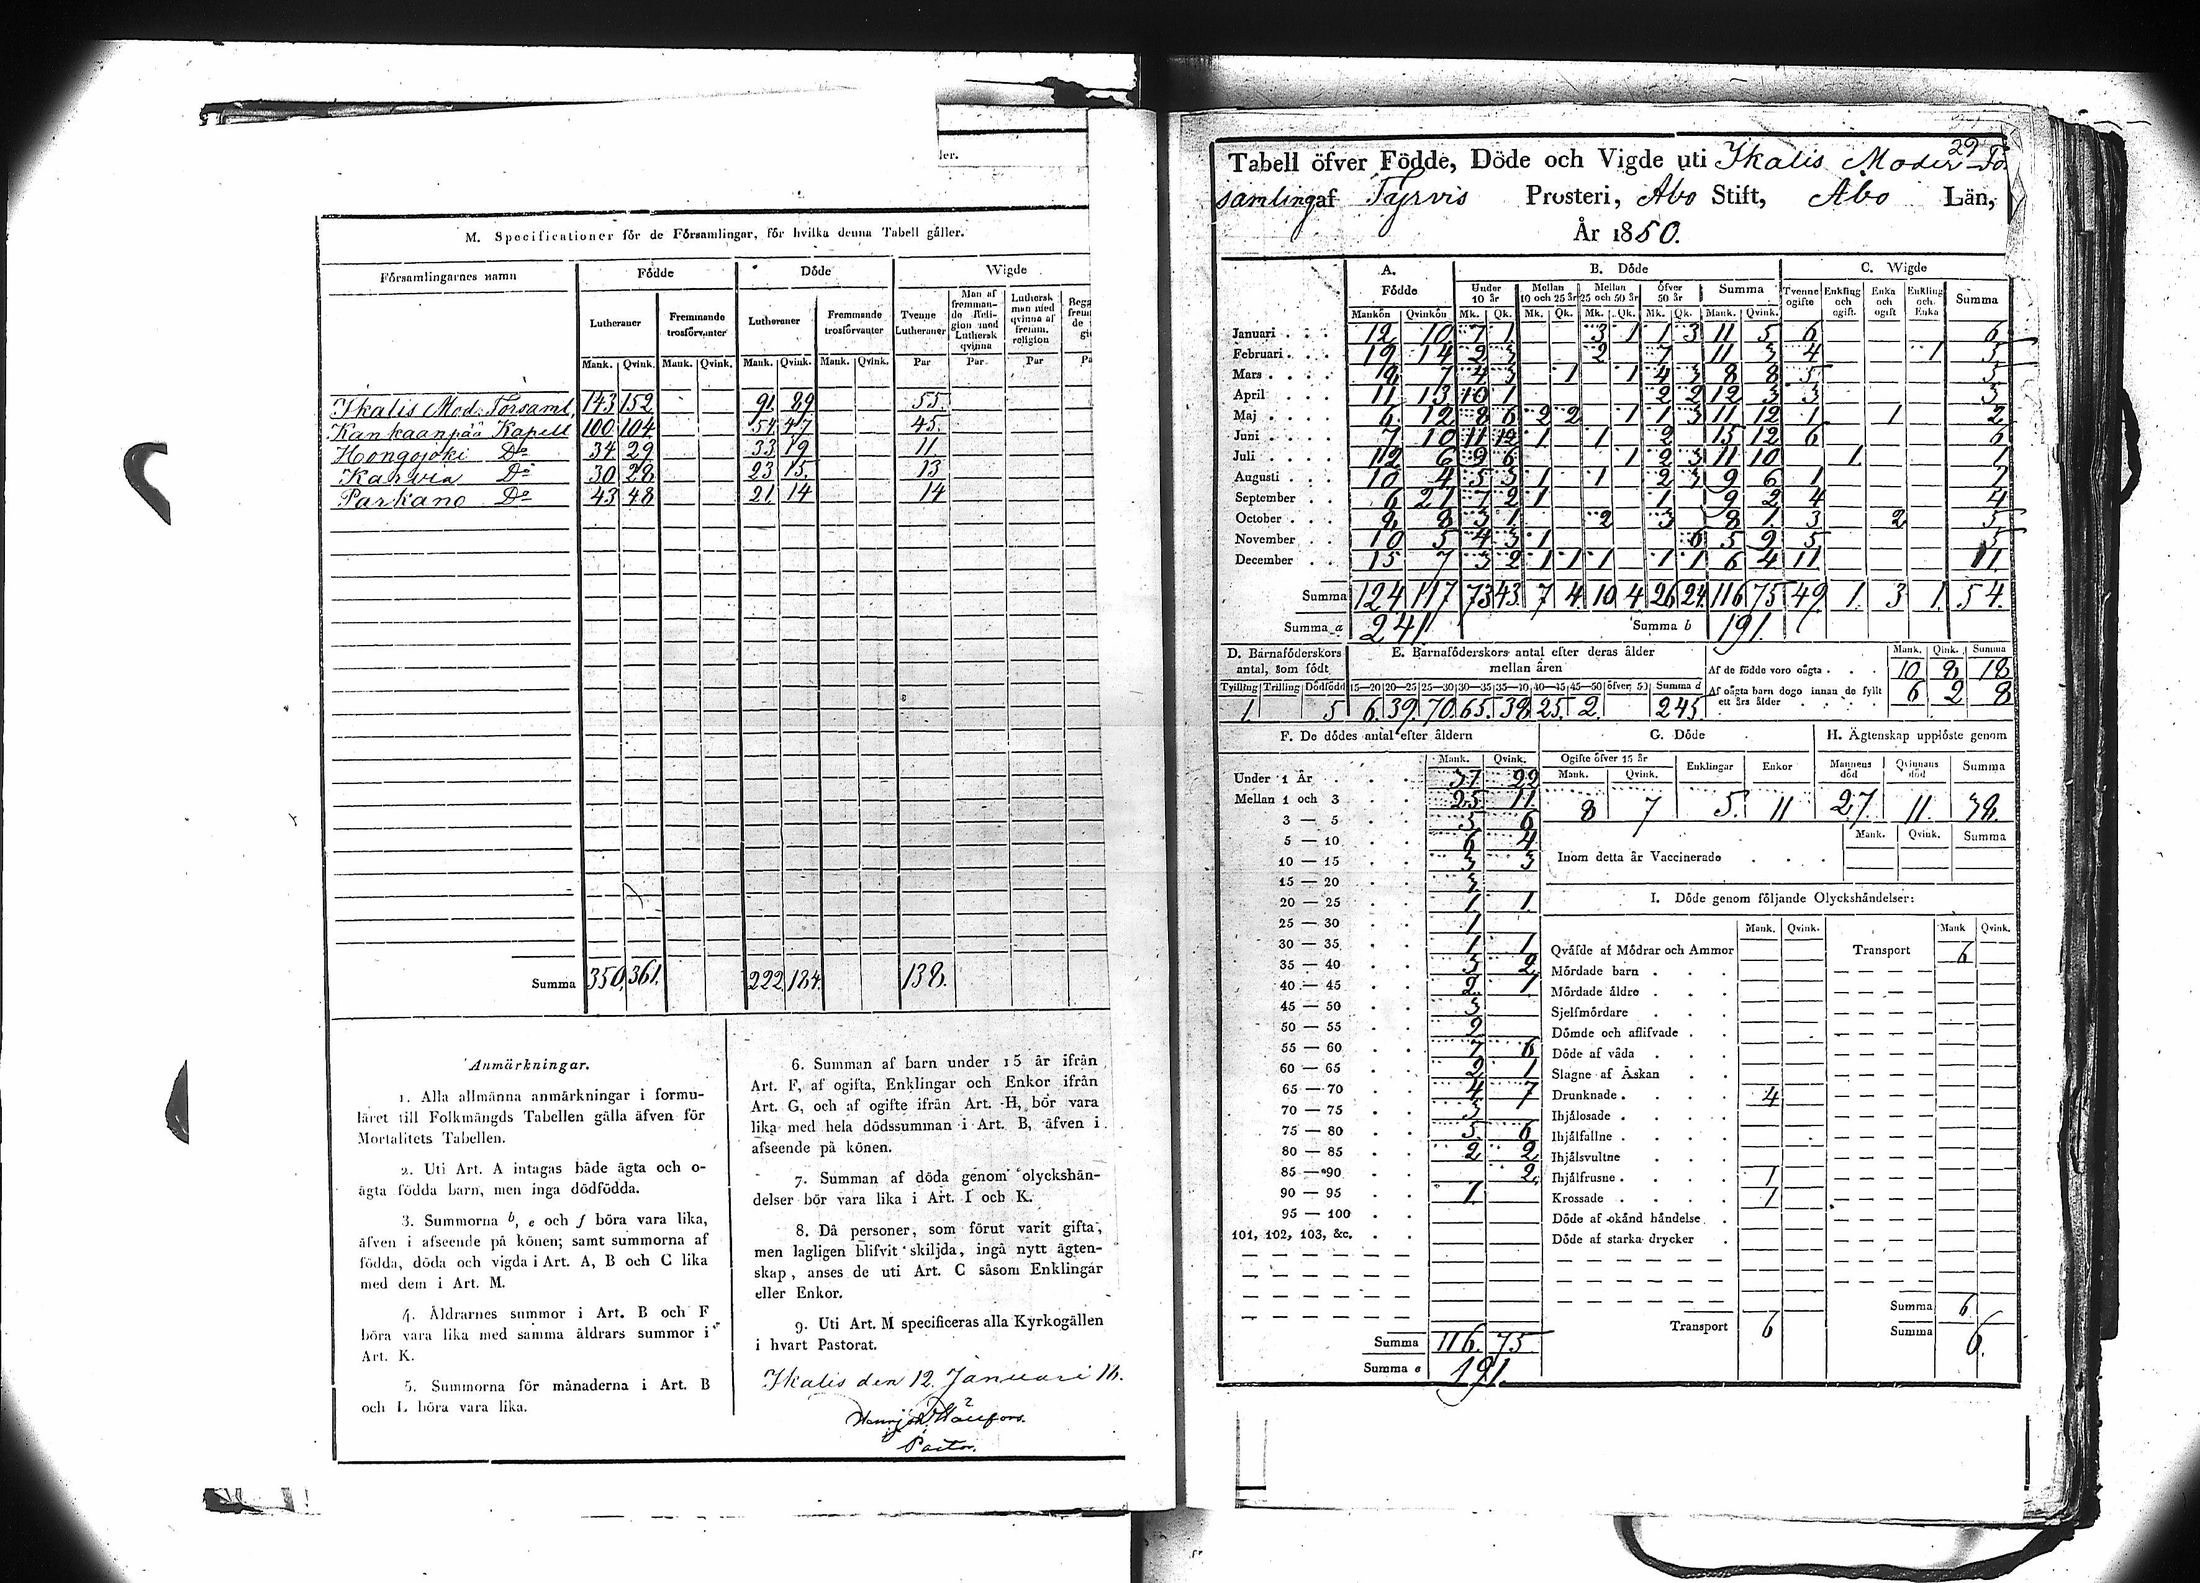 ler.
M. Specificationer för de Församlingar, för hvilka denna Tabell gäller.
Församlingarnes namn | Födde | Döde | Wigde
Lutheraner | Fremmande trosförvanter | Lutheraner | Fremmande trosförvanter | Tvenne Lutheraner | Man af fremmande Religion med Luthersk qvinna | Luthersk man med qvinna af fremm. religion
Mank. | Qvink. | Mank. | Qvink. | Mank. | Qvink. | Mank. | Qvink. | Par | Par | Par
Ikalis Mod. Församl. 143 152 91 89 55.
Kankaanpää Kapell 100 104 54 47 45.
Hongojoki Do 34 29 33 19 11.
Karvia Do 30 28 23 15. 13
Parkano Do 43 48 21 14 14
Summa 350 361. 222 184. 138.
Anmärkningar.
1. Alla allmänna anmärkningar i formu-
läret till Folkmängds Tabellen gälla äfven för
Mortalitets Tabellen.
2. Uti Art. A intagas både ägta och o-
ägta födda barn, men inga dödfödda.
3. Summorna b, e och f böra vara lika,
äfven i afseende på könen; samt summorna af
födda, döda och vigda i Art. A, B och C lika
med dem i Art. M.
4. Åldrarnes summor i Art. B och F
böra vara lika med samma åldrars summor i
Art. K.
5. Summorna för månaderna i Art. B
och L böra vara lika.
6. Summan af barn under 15 år ifrån
Art. F, af ogifta, Enklingar och Enkor ifrån
Art. G, och af ogifte ifrån Art. H, bör vara
lika med hela dödssumman i Art. B, äfven i
afseende på könen.
7. Summan af döda genom olyckshän-
delser bör vara lika i Art. I och K.
8. Då personer, som förut varit gifta,
men lagligen blifvit skiljda, ingå nytt ägten-
skap, anses de uti Art. C såsom Enklingar
eller Enkor.
9. Uti Art. M specificeras alla Kyrkogällen
i hvart Pastorat.
Ikalis den 12. Januari 18.
Pastor.
29
Tabell öfver Födde, Döde och Vigde uti Ikalis Moder För
samling af Tyrvis Prosteri, Åbo Stift, Åbo Län,
År 1850.
A. Födde | B. Döde | C. Wigde
Under 10 år | Mellan 10 och 25 år | Mellan 25 och 50 år | Öfver 50 år | Summa | Tvenne ogifte | Enkling och ogift. | Enka och ogift | Enkling och Enka | Summa
Mankön | Qvinkön | Mk. | Qk. | Mk. | Qk. | Mk. | Qk. | Mk. | Qk. | Mank. | Qvink.
Januari 12 10 7 1 3 1 1 3 11 5 6 6
Februari 19 14 2 3 2 7 11 3 4 1 5
Mars 8 7 4 3 1 1 4 3 8 8 5 5
April 11 13 10 1 2 2 12 3 3 3
Maj 6 12 8 6 2 2 1 1 3 11 12 1 1 2
Juni 7 10 11 12 1 1 2 15 12 6 6
Juli 12 6 9 6 1 2 3 11 10 1. 1
Augusti 10 4 5 3 1 1 2 3 9 6 1 1
September 6 21 7 2 1 1 9 2 4 4
October 8 8 3 1 2 3 8 1 3 2 5
November 10 5 4 3 1 6 5 9 5 5
December 15 7 3 2 1 1 1 1 1 6 4 11 11
Summa 124 117 73 43. 7 4. 10 4. 26 24. 116 75 49. 1. 3 1. 54.
Summa a 241 Summa b 191.
D. Barnaföderskors antal, som födt
E. Barnaföderskors antal efter deras ålder mellan åren
Tvilling | Trilling | Dödfödd | 15—20 | 20—25 | 25—30 | 30—35 | 35—40 | 40—45 | 45—50 | öfver 50 | Summa d
1. 5 6. 39. 70. 65. 38 25. 2. 245
Mank. | Qink. | Summa
Af de födde voro oägta 10 8 18
Af oägta barn dogo innan de fyllt ett års ålder 6 2 8
F. De dödes antal efter åldern
Mank. | Qvink.
Under 1 År 37 22
Mellan 1 och 3 25 11
3 — 5 5 6
5 — 10 6 4
10 — 15 3 3
15 — 20 3
20 — 25 1. 1.
25 — 30 1
30 — 35 1 1
35 — 40 3 2
40 — 45 2. 1
45 — 50 3
50 — 55 2
55 — 60 7 6
60 — 65 2 1
65 — 70 4 7
70 — 75 3
75 — 80 5 6
80 — 85 2 2
85 — 90 2
90 — 95 1.
95 — 100
101, 102, 103, &c.
Summa 116. 75
Summa e 191.
G. Döde
Ogifte öfver 15 år | Enklingar | Enkor
Mank. | Qvink.
8 7 5. 11
H. Ägtenskap upplöste genom
Mannens död | Qvinnans död | Summa
27. 11. 38.
Mank. | Qvink. | Summa
Inom detta år Vaccinerade
I. Döde genom följande Olyckshändelser:
Mank. | Qvink. | Mank | Qvink.
Qväfde af Mödrar och Ammor Transport 6
Mördade barn
Mördade äldre
Sjelfmördare
Dömde och aflifvade
Döde af våda
Slagne af Åskan
Drunknade 4
Ihjälosade
Ihjälfallne
Ihjälsvultne
Ihjälfrusne 1
Krossade 1
Döde af okänd händelse
Döde af starka drycker
Summa 6
Transport 6 Summa 6.